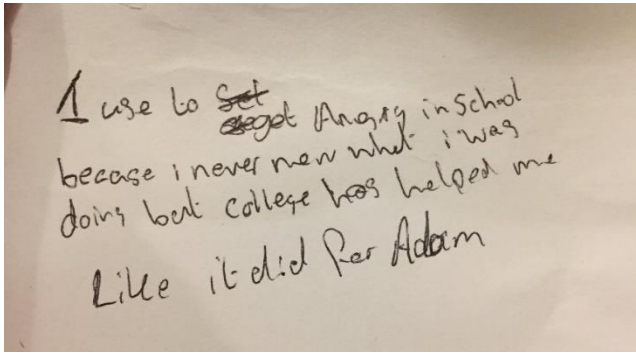 I use to get Angry in School
becase i never new what i was
doing but college has helped me
Like it did for Adam